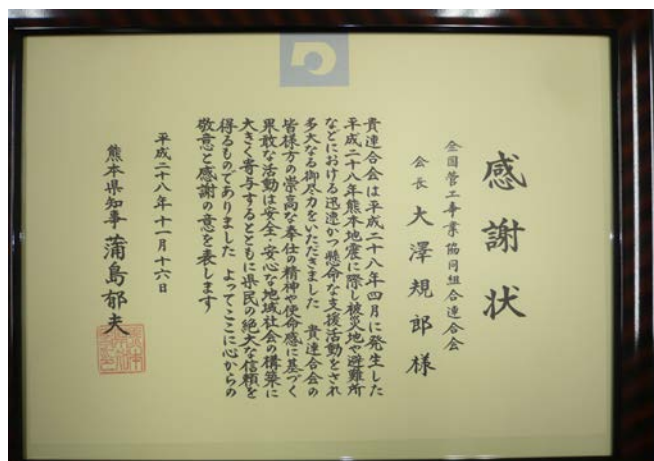 感謝状
全国管工事業協同組合連合会
会長 大澤規郎様
貴連合会は平成二十八年四月に発生した
平成二十八年熊本地震に際し被災地や避難所
などにおける迅速かつ懸命な支援活動をされ
多大なる御尽力をいただきました 貴連合会の
皆様方の崇高な奉仕の精神や使命感に基づく
果敢な活動は安全・安心な地域社会の構築に
大きく寄与するとともに県民の絶大な信頼を
得るものでありました よってここに心からの
敬意と感謝の意を表します
平成二十八年十一月十六日
熊本県知事 蒲島郁夫